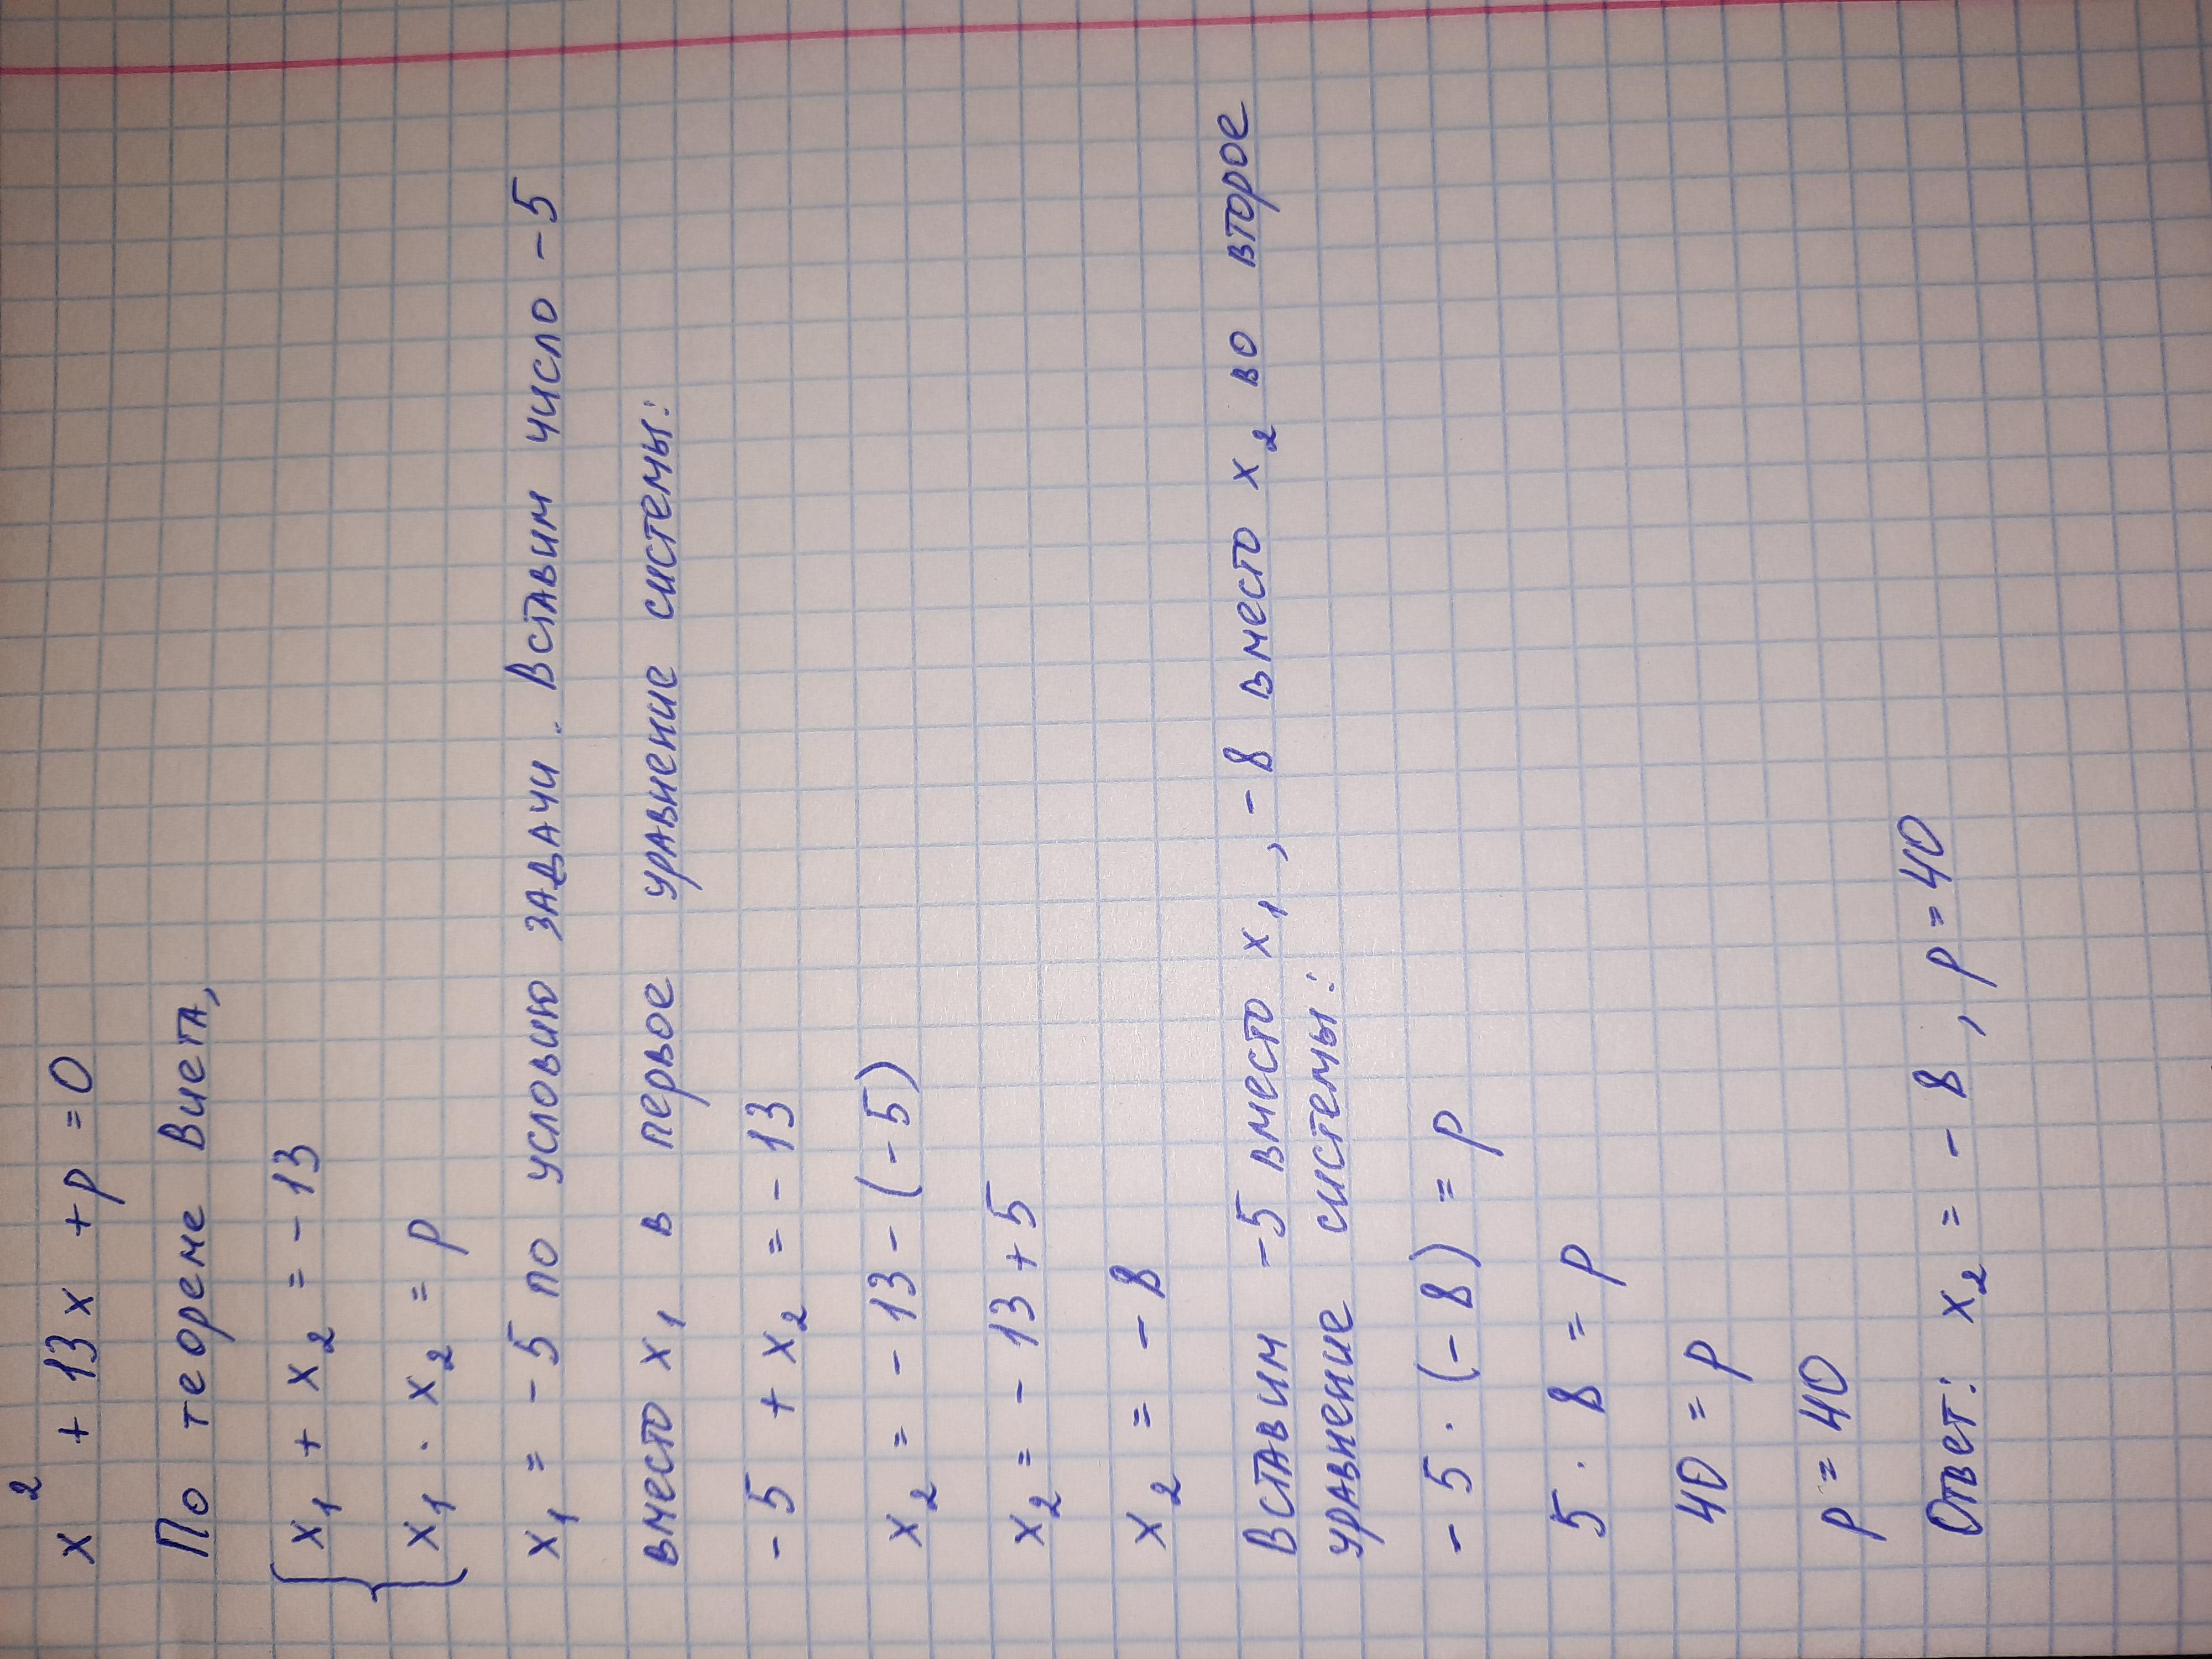 x² + 13x + p = 0
По теореме Виета,
x₁ + x₂ = -13
x₁ · x₂ = p
x₁ = -5 по условию задачи. Вставим число -5
вместо x₁ в первое уравнение системы:
-5 + x₂ = -13
x₂ = -13 - (-5)
x₂ = -13 + 5
x₂ = -8
Вставим -5 вместо x₁, -8 вместо x₂ во второе
уравнение системы:
-5 · (-8) = p
5 · 8 = p
40 = p
p = 40
Ответ: x₂ = -8, p = 40